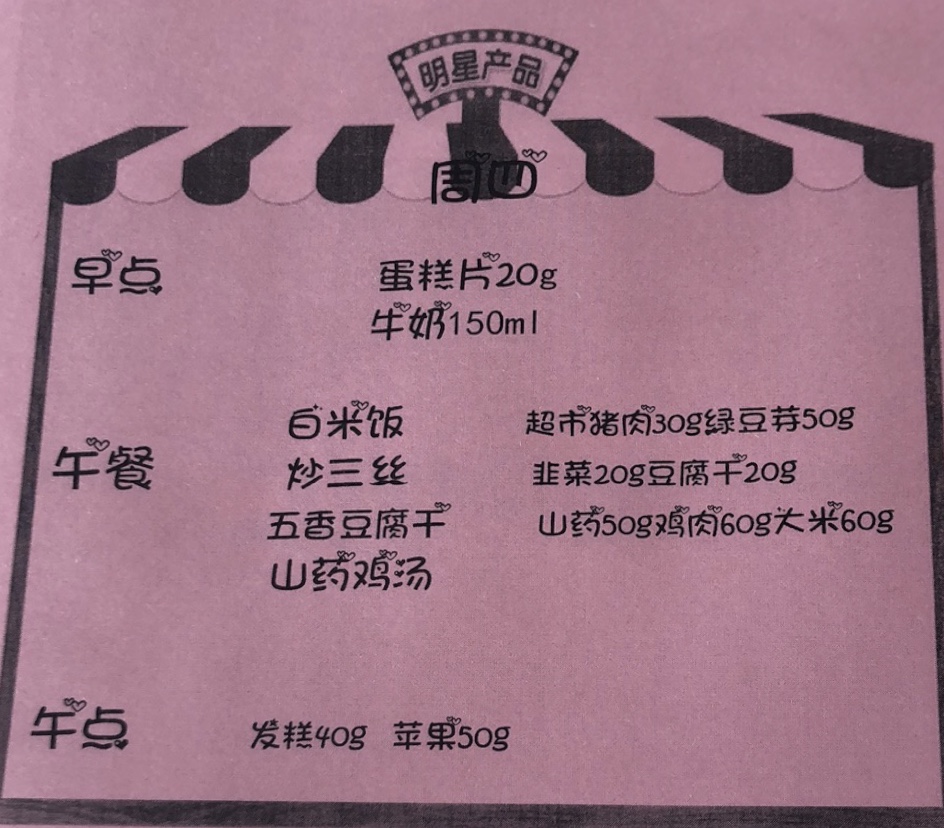 明星产品
周四
早点
蛋糕片20g
牛奶150ml
午餐
白米饭
超市猪肉30g绿豆芽50g
炒三丝
韭菜20g豆腐干20g
五香豆腐干
山药50g鸡肉60g大米60g
山药鸡汤
午点
发糕40g 苹果50g